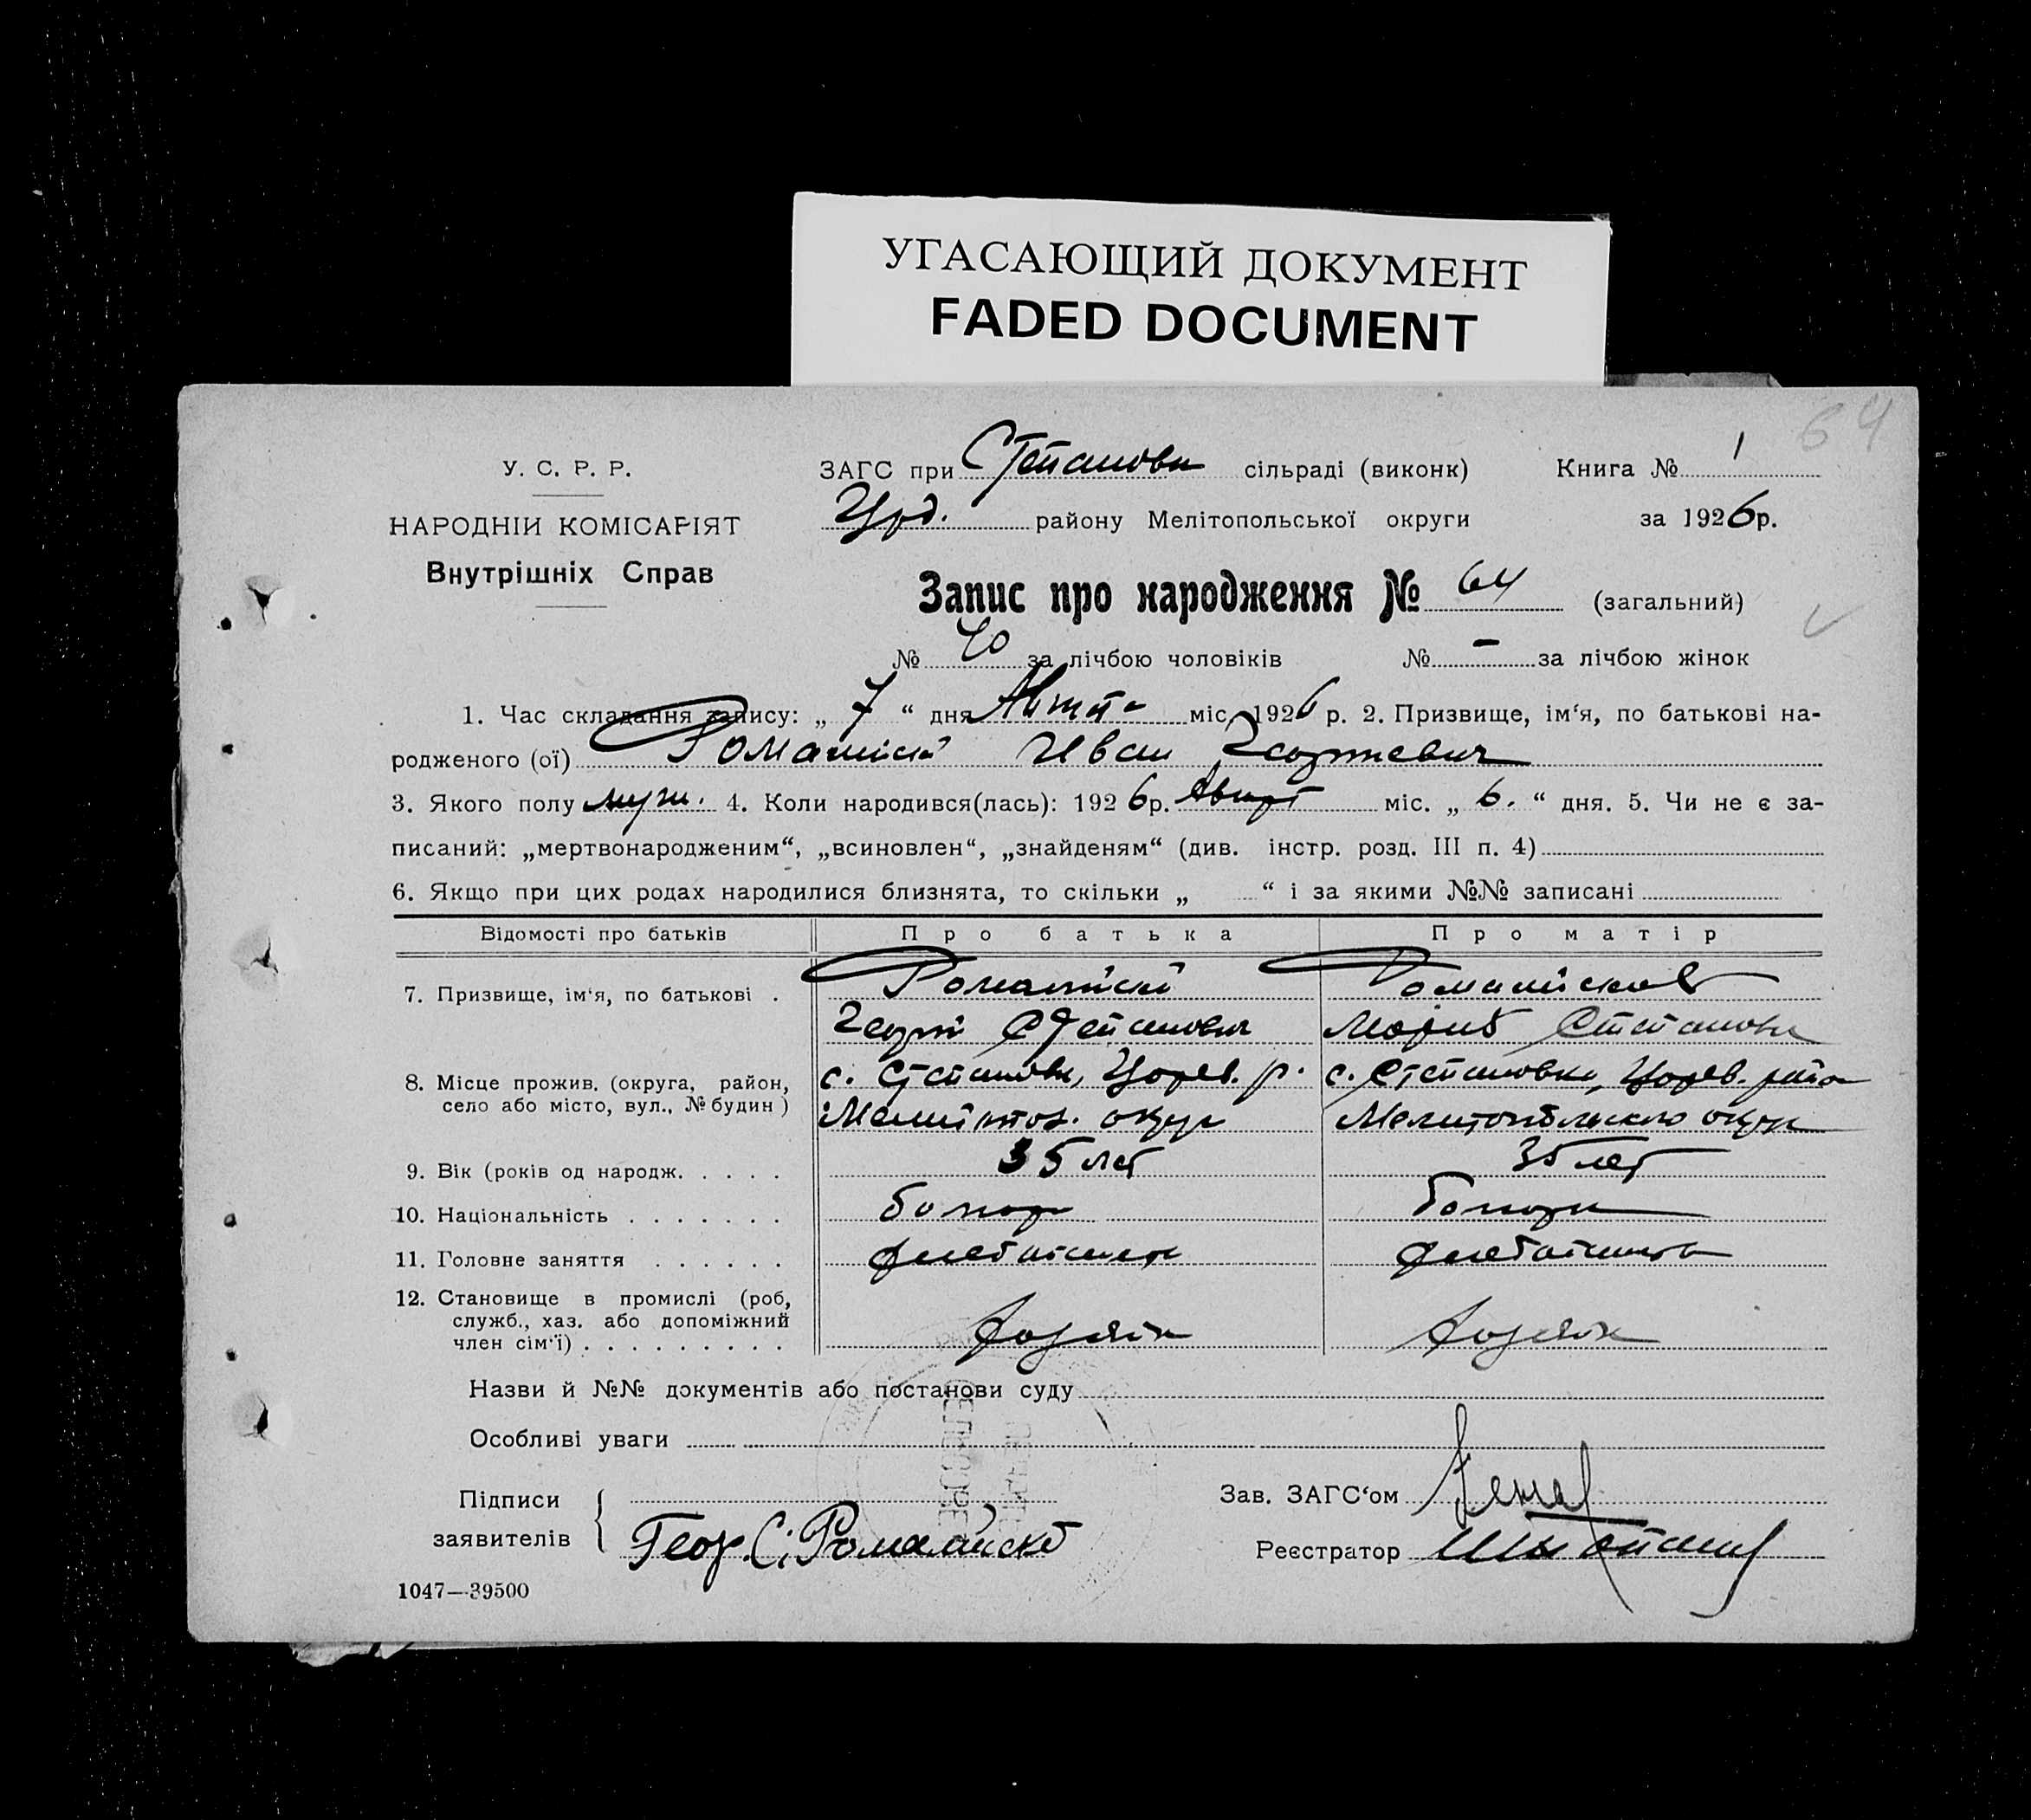 УГАСАЮЩИЙ ДОКУМЕНТ
FADED DOCUMENT
64
У. С. Р. Р.
ЗАГС при Степановк сільраді (виконк) Книга № 1
НАРОДНІЙ КОМІСАРІЯТ
району Мелітопольської округи за 1926р.
Внутрішніх Справ
Запис про народження № 64 (загальний)
№ 40 за лічбою чоловіків № - за лічбою жінок
1. Час складання запису: „ 7 “ дня міс. 1926 р. 2. Призвище, ім‘я, по батькові на-
родженого (ої) Романіскі Иван Георгиевич
3. Якого полу муж. 4. Коли народився(лась): 1926р. Август міс. „ 6. “ дня. 5. Чи не є за-
писаний: „мертвонародженим“, „всиновлен“, „знайденям“ (див. інстр. розд. III п. 4)
6. Якщо при цих родах народилися близнята, то скільки „ “ і за якими №№ записані
Відомості про батьків Про батька Про матір
7. Призвище, ім‘я, по батькові .
Георгій Степанович Мария Степанов
8. Місце прожив. (округа, район, с. Степановк, Царев. р. с. Степановка, Царев. район
село або місто, вул., № будин) Мелитоп. округ Мелитопольского округ
9. Вік (років од народж. . . . . 35 лет 35 лет
10. Національність . . . . . . .
11. Головне заняття . . . . . . хлебопашец
12. Становище в промислі (роб,
служб., хаз. або допоміжний хозяін хозяін
член сім‘ї) . . . . . . . . .
Назви й №№ документів або постанови суду
Особливі уваги
Підписи Зав. ЗАГС‘ом
заявителів Геор. С. Реєстратор
1047—39500